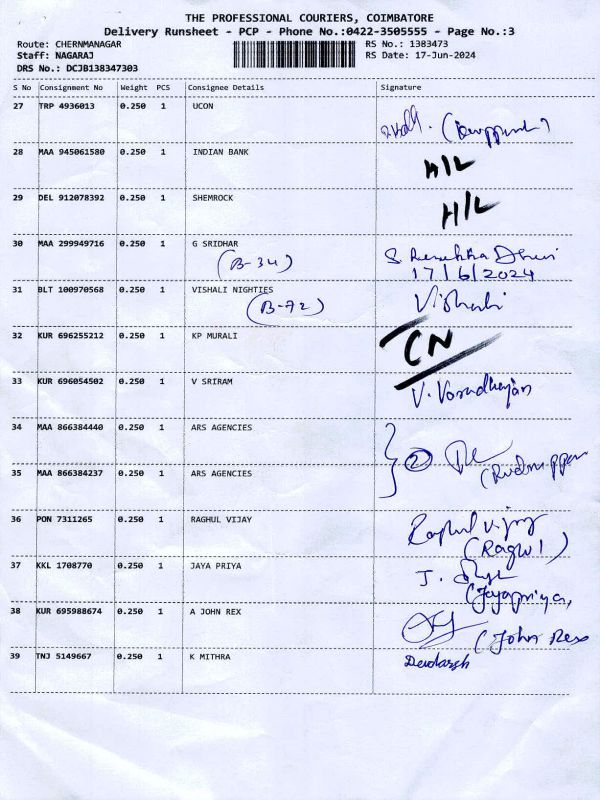 THE PROFESSIONAL COURIERS, COIMBATORE
Delivery Runsheet - PCP - Phone No.:0422-3505555 - Page No.:3
Route: CHERNMANAGAR RS No.: 1383473
Staff: NAGARAJ RS Date: 17-Jun-2024
DRS No.: DCJB138347303
S No Consignment No Weight PCS Consignee Details Signature
27 TRP 4936013 0.250 1 UCON
28 MAA 945061580 0.250 1 INDIAN BANK H/L
29 DEL 912078392 0.250 1 SHEMROCK H/L
30 MAA 299949716 0.250 1 G SRIDHAR
(B-34) 17/6/2024
31 BLT 100970568 0.250 1 VISHALI NIGHTIES Vishali
(B-72)
32 KUR 696255212 0.250 1 KP MURALI CN
33 KUR 696054502 0.250 1 V SRIRAM V. Varadharajan
34 MAA 866384440 0.250 1 ARS AGENCIES
2
35 MAA 866384237 0.250 1 ARS AGENCIES
36 PON 7311265 0.250 1 RAGHUL VIJAY Raghul Vijay
(Ragul)
37 KKL 1708770 0.250 1 JAYA PRIYA
(Jayapriya,
38 KUR 695988674 0.250 1 A JOHN REX
(John Rex
39 TNJ 5149667 0.250 1 K MITHRA